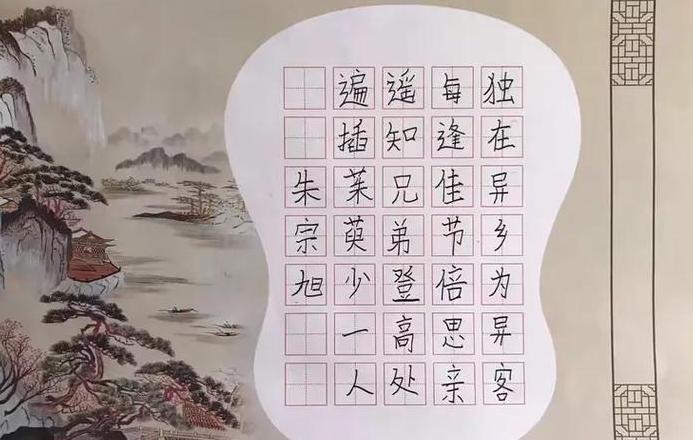 独在异乡为异客
每逢佳节倍思亲
遥知兄弟登高处
遍插茱萸少一人
朱宗旭